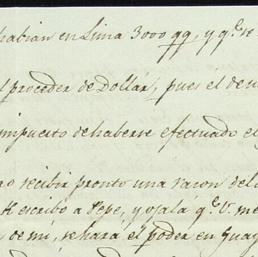 habian en Lima 3000 qq, y q.e se
proceder de Dollar, pues el de
impuesto de haberse efectuado el
recibir pronto una razon del
escribo a Pepe, y ojalá q.e V. me
de mi, se hará el poder en Guay